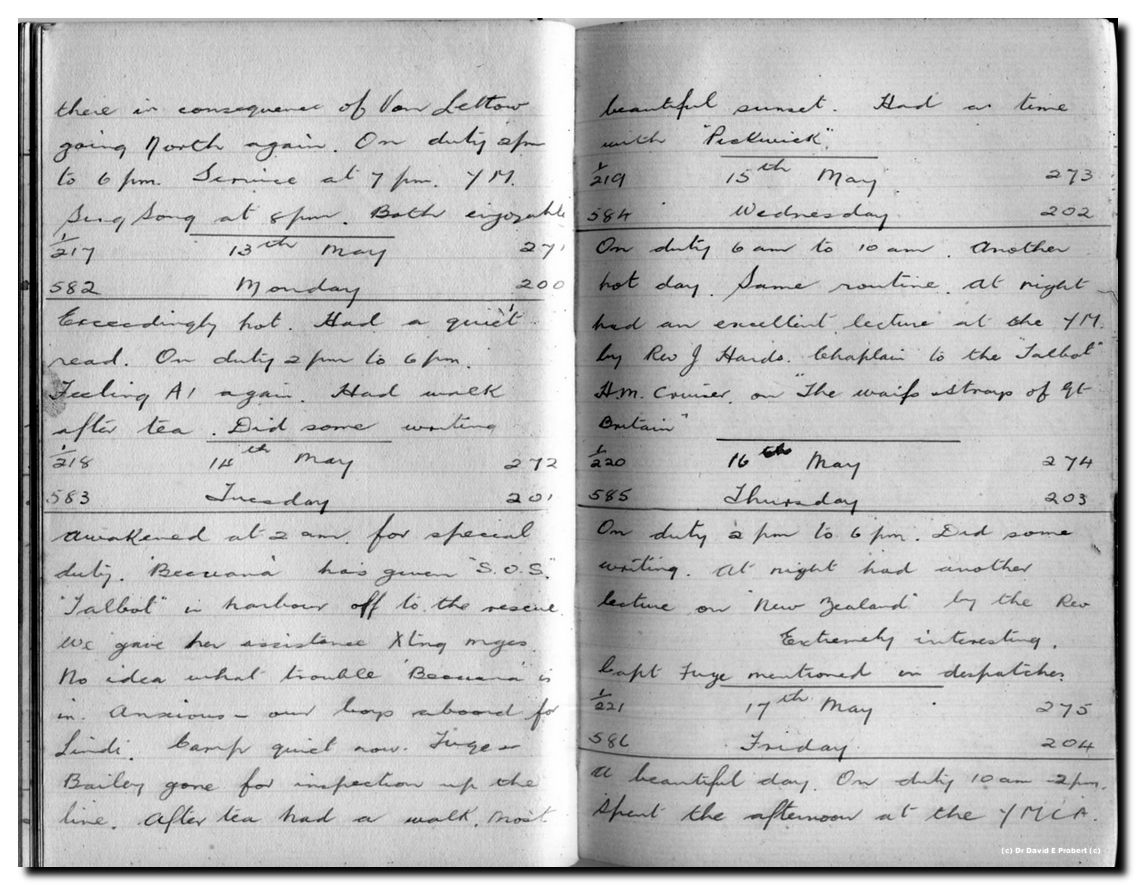 there in consequence of Von Lettow
going North again. On duty 2pm
to 6 pm. Service at 7 pm. Y M.
Sing Song at 8 pm. Both enjoyable
1/217 13th May 271
582 Monday 200
Exceedingly hot. Had a quiet
read. On duty 2 pm to 6 pm.
Feeling A1 again. Had walk
after tea. Did some writing
1/218 14th May 272
583 Tuesday 201
Awakened at 2 am. for special
duty. "Becuana" has given "S.O.S".
"Talbot" in harbour off to the rescue.
We gave her assistance Xtng mges.
No idea what trouble "Becuana" is
in. Anxious – our boys aboard for
Lindi. Camp quiet now. Fuge &
Bailey gone for inspection up the
line. After tea had a walk. Most
beautiful sunset. Had a time
with "Pickwick".
1/219 15th May 273
584 Wednesday 202
On duty 6 am to 10 am. Another
hot day. Same routine. At night
had an excellent lecture at the Y M.
by Rev J Hards. Chaplain to the "Talbot"
H.M. Cruiser, on "The waifs & strays of Gt
Britain"
1/220 16th May 274
585 Thursday 203
On duty 2 pm to 6 pm. Did some
writing. At night had another
lecture on "New Zealand" by the Rev
Extremely interesting.
Capt Fuge mentioned in despatches
1/221 17th May 275
586 Friday 204
A beautiful day. On duty 10 am – 2 pm.
Spent the afternoon at the Y M C A.
(c) Dr David E Probert (c)